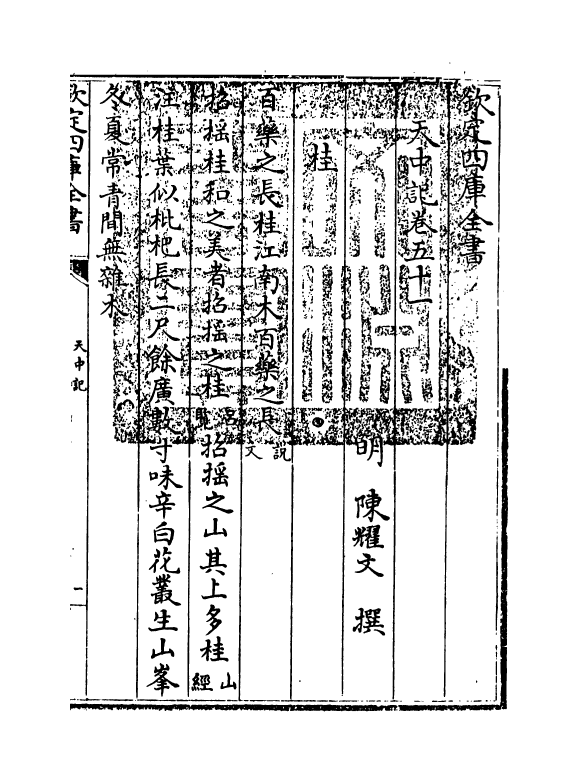 欽定四庫全書
天中記卷五十一
明 陳耀文 撰
桂
百藥之長桂江南木百藥之長說文
招搖桂和之美者招搖之桂呂覽招搖之山其上多桂山經
注桂葉似枇杷長二尺餘廣數寸味辛白花叢生山峯
冬夏常青間無雜木
欽定四庫全書
天中記